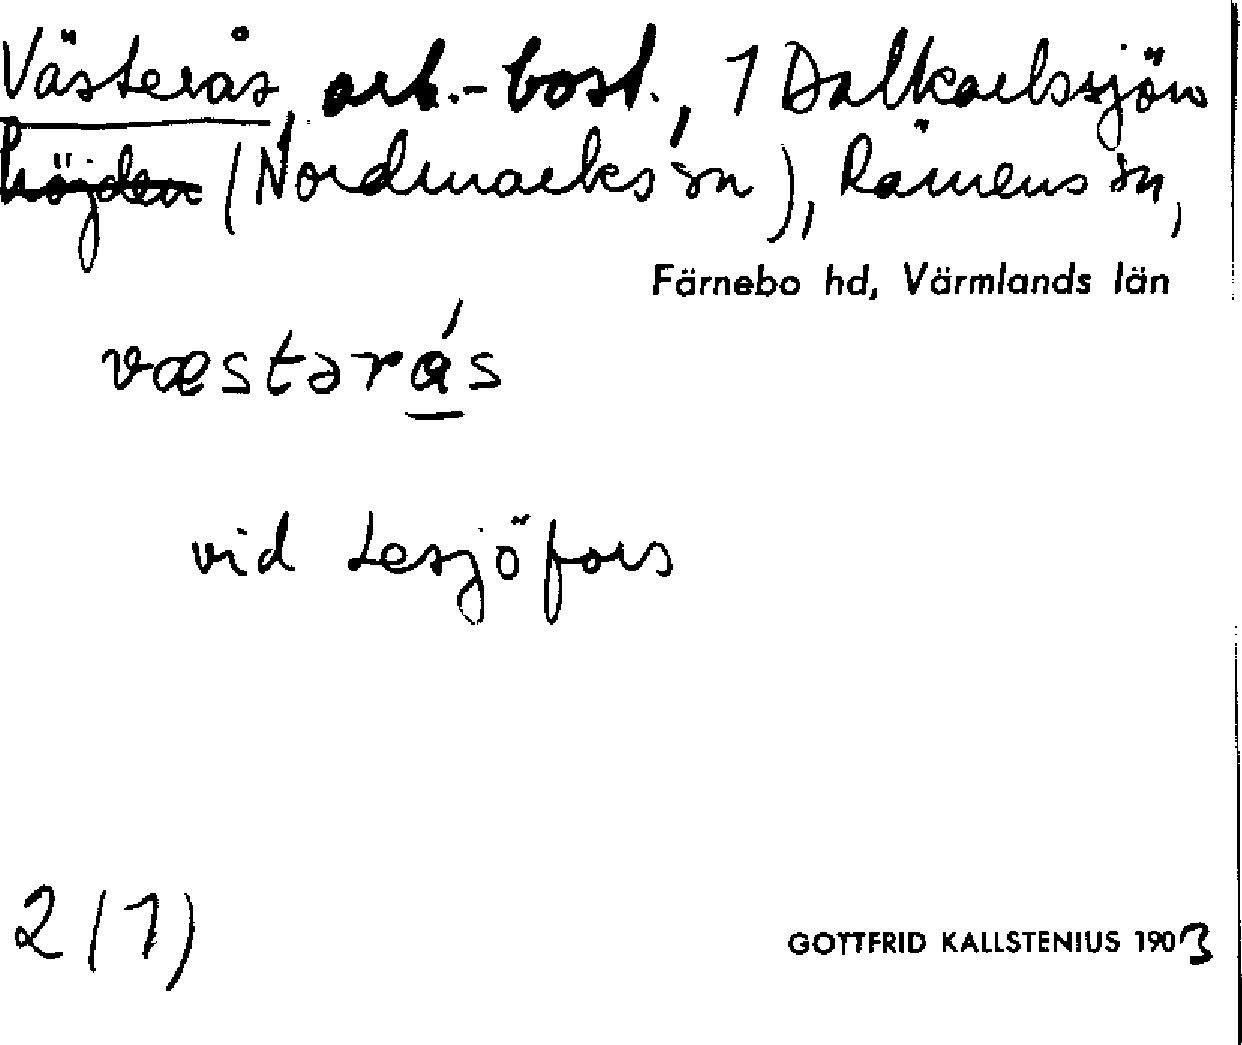 Västerås, arb.-bost., 1 Dalkarlssjön
höjden (Nordmarks sn), Rämens sn,
Färnebo hd, Värmlands län
væstərás
vid Lesjöfors
2 (1)
GOTTFRID KALLSTENIUS 1903